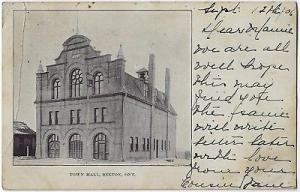 Sept 12th/06
Dear Mamie
we are all
well hope
this may
find you
the same
will write
letter later
with love
from your
cousin Jane
TOWN HALL, BEETON, ONT.